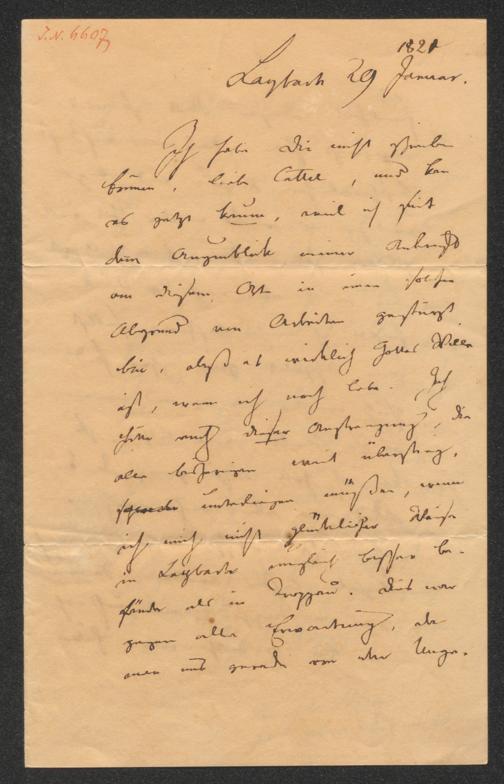 I.N. 6607
1821
Laybach 29 Januar.
Ich habe Dir nicht schreiben
können, liebe Cattel, und kan
es jetzt kaum, weil ich seit
dem Augenblick meiner Ankunft
an diesem Ort in einen solchen
Abgrund von Arbeiten gestürzt
bin, daß es wirklich Gottes Wille
ist, wenn ich noch lebe. Ich
hätte auch dieser Anstrengung, die
alle bisherigen weit überstieg,
unterliegen müßen, wenn
ich mich nicht glücklicher Weise
in Laybach ungleich besser be-
fände als in Troppau. Dies war
gegen alle Erwartung, da
man uns gerade vor der Unge-